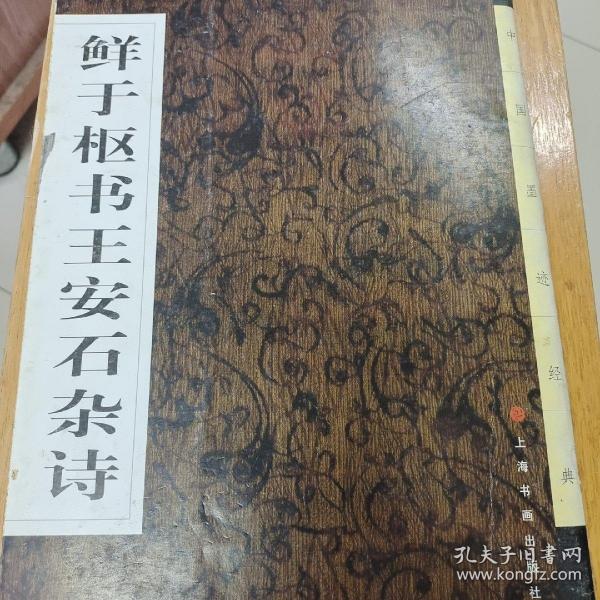 鲜于枢书王安石杂诗
中国墨迹经典
上海书画出版社
孔夫子旧书网
www.kongfz.com